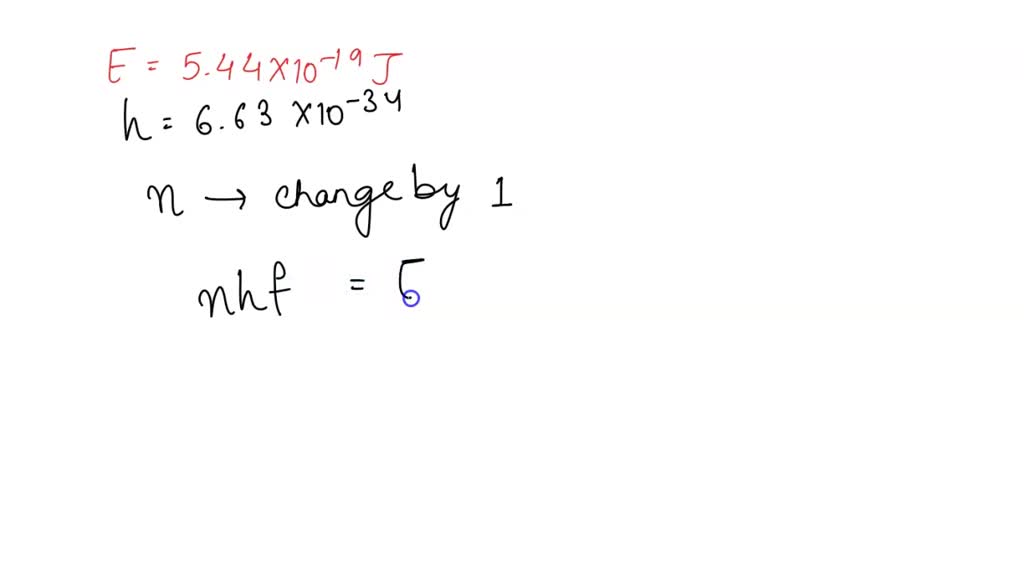 E = 5.44×10⁻¹⁹ J
h = 6.63 ×10⁻³⁴
n → change by 1
nhf = 5